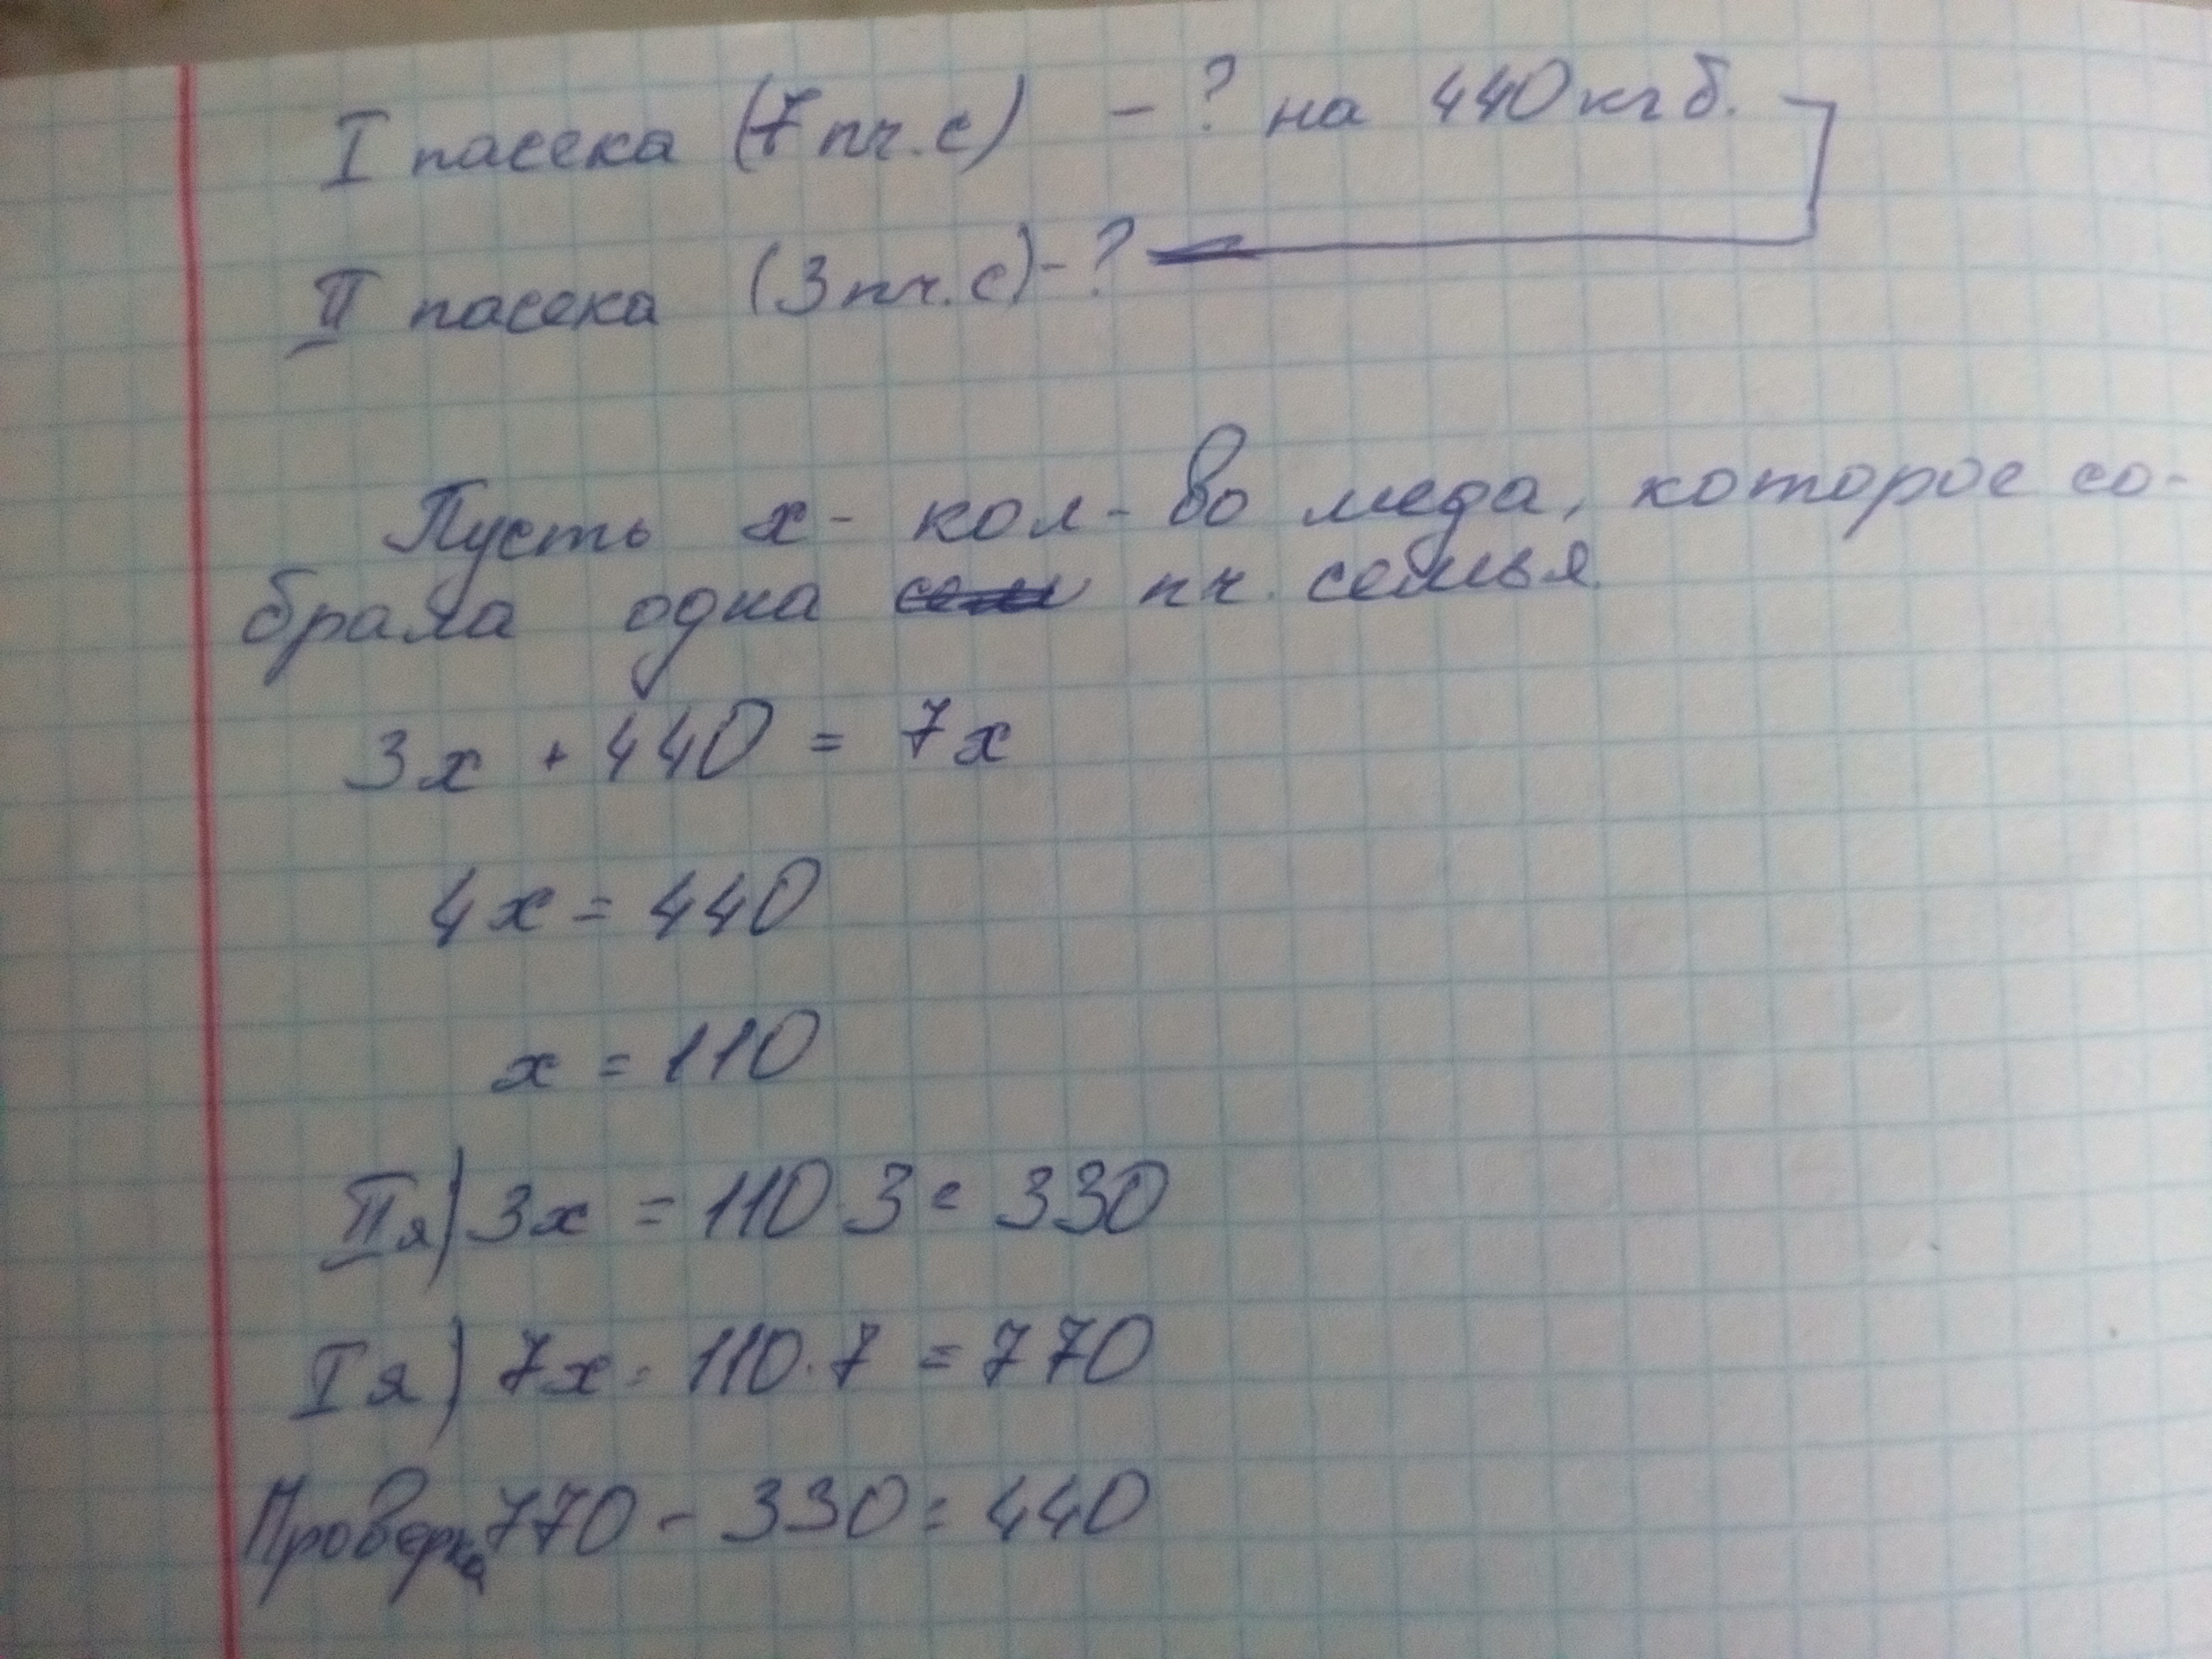 I пасека (7 пч. с) - ? на 440 кг б.
II пасека (3 пч. с) - ?
Пусть x - кол-во меда, которое со-
брала одна пч. семья.
3x + 440 = 7x
4x = 440
x = 110
II я) 3x = 110 · 3 = 330
I я) 7x = 110 · 7 = 770
Проверка 770 - 330 = 440